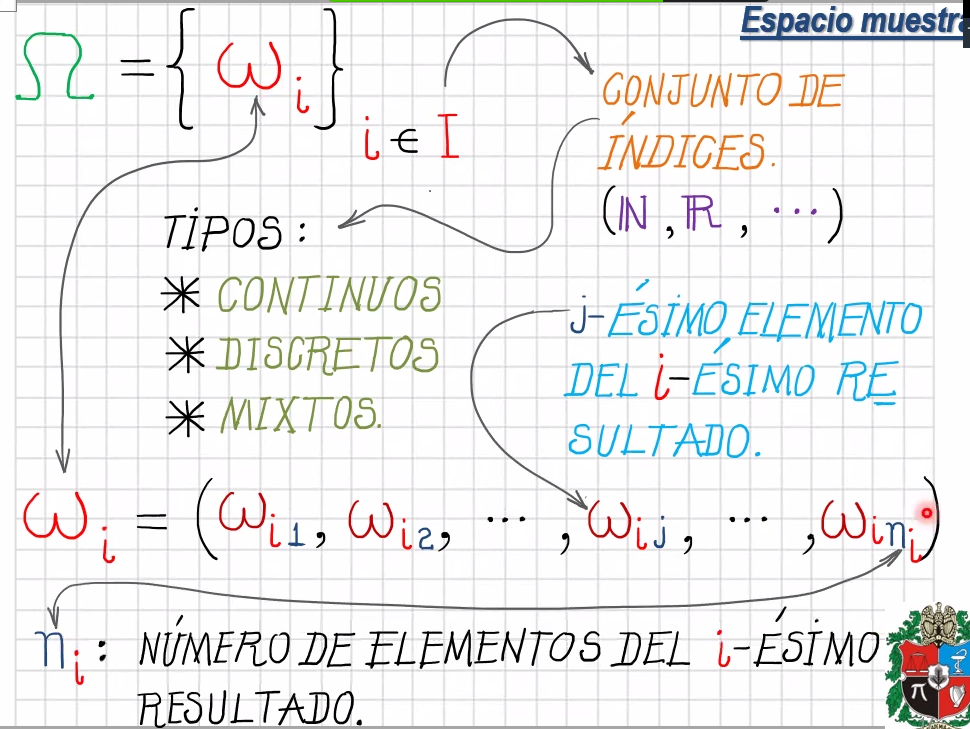 Espacio muestra
Ω = {ω_i}_{i ∈ I}
CONJUNTO DE
ÍNDICES.
(ℕ, ℝ, ⋯)
TIPOS:
* CONTINUOS
* DISCRETOS
* MIXTOS.
j-ÉSIMO ELEMENTO
DEL i-ÉSIMO RE
SULTADO.
ω_i = (ω_{i1}, ω_{i2}, ⋯, ω_{ij}, ⋯, ω_{in_i})
n_i: NÚMERO DE ELEMENTOS DEL i-ÉSIMO
RESULTADO.